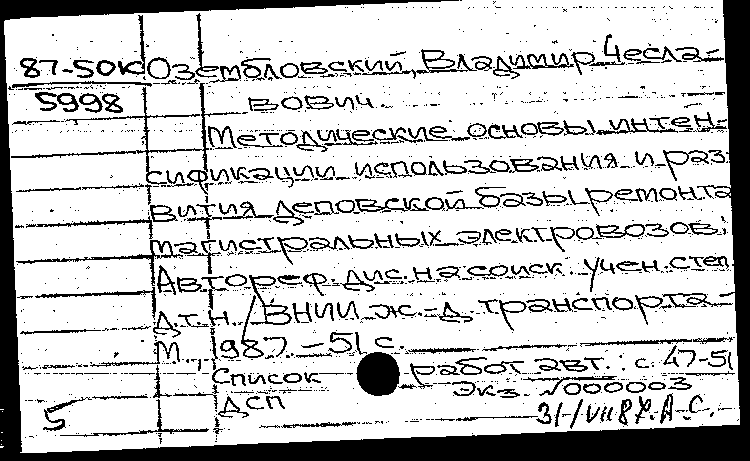 87-50К Озембловский, Владимир Чесла-
5998 вович.
Методические основы интен-
сификации использования и раз-
вития деповской базы ремонта
магистральных электровозов:
Автореф. дис. на соиск. учен. степ.
д.т.н. / ВНИИ ж.-д. транспорта -
М., 1987. - 51 с.
Список работ авт.: с. 47-51
ДСП Экз. №000003
5 31/VII 87. А-С.-